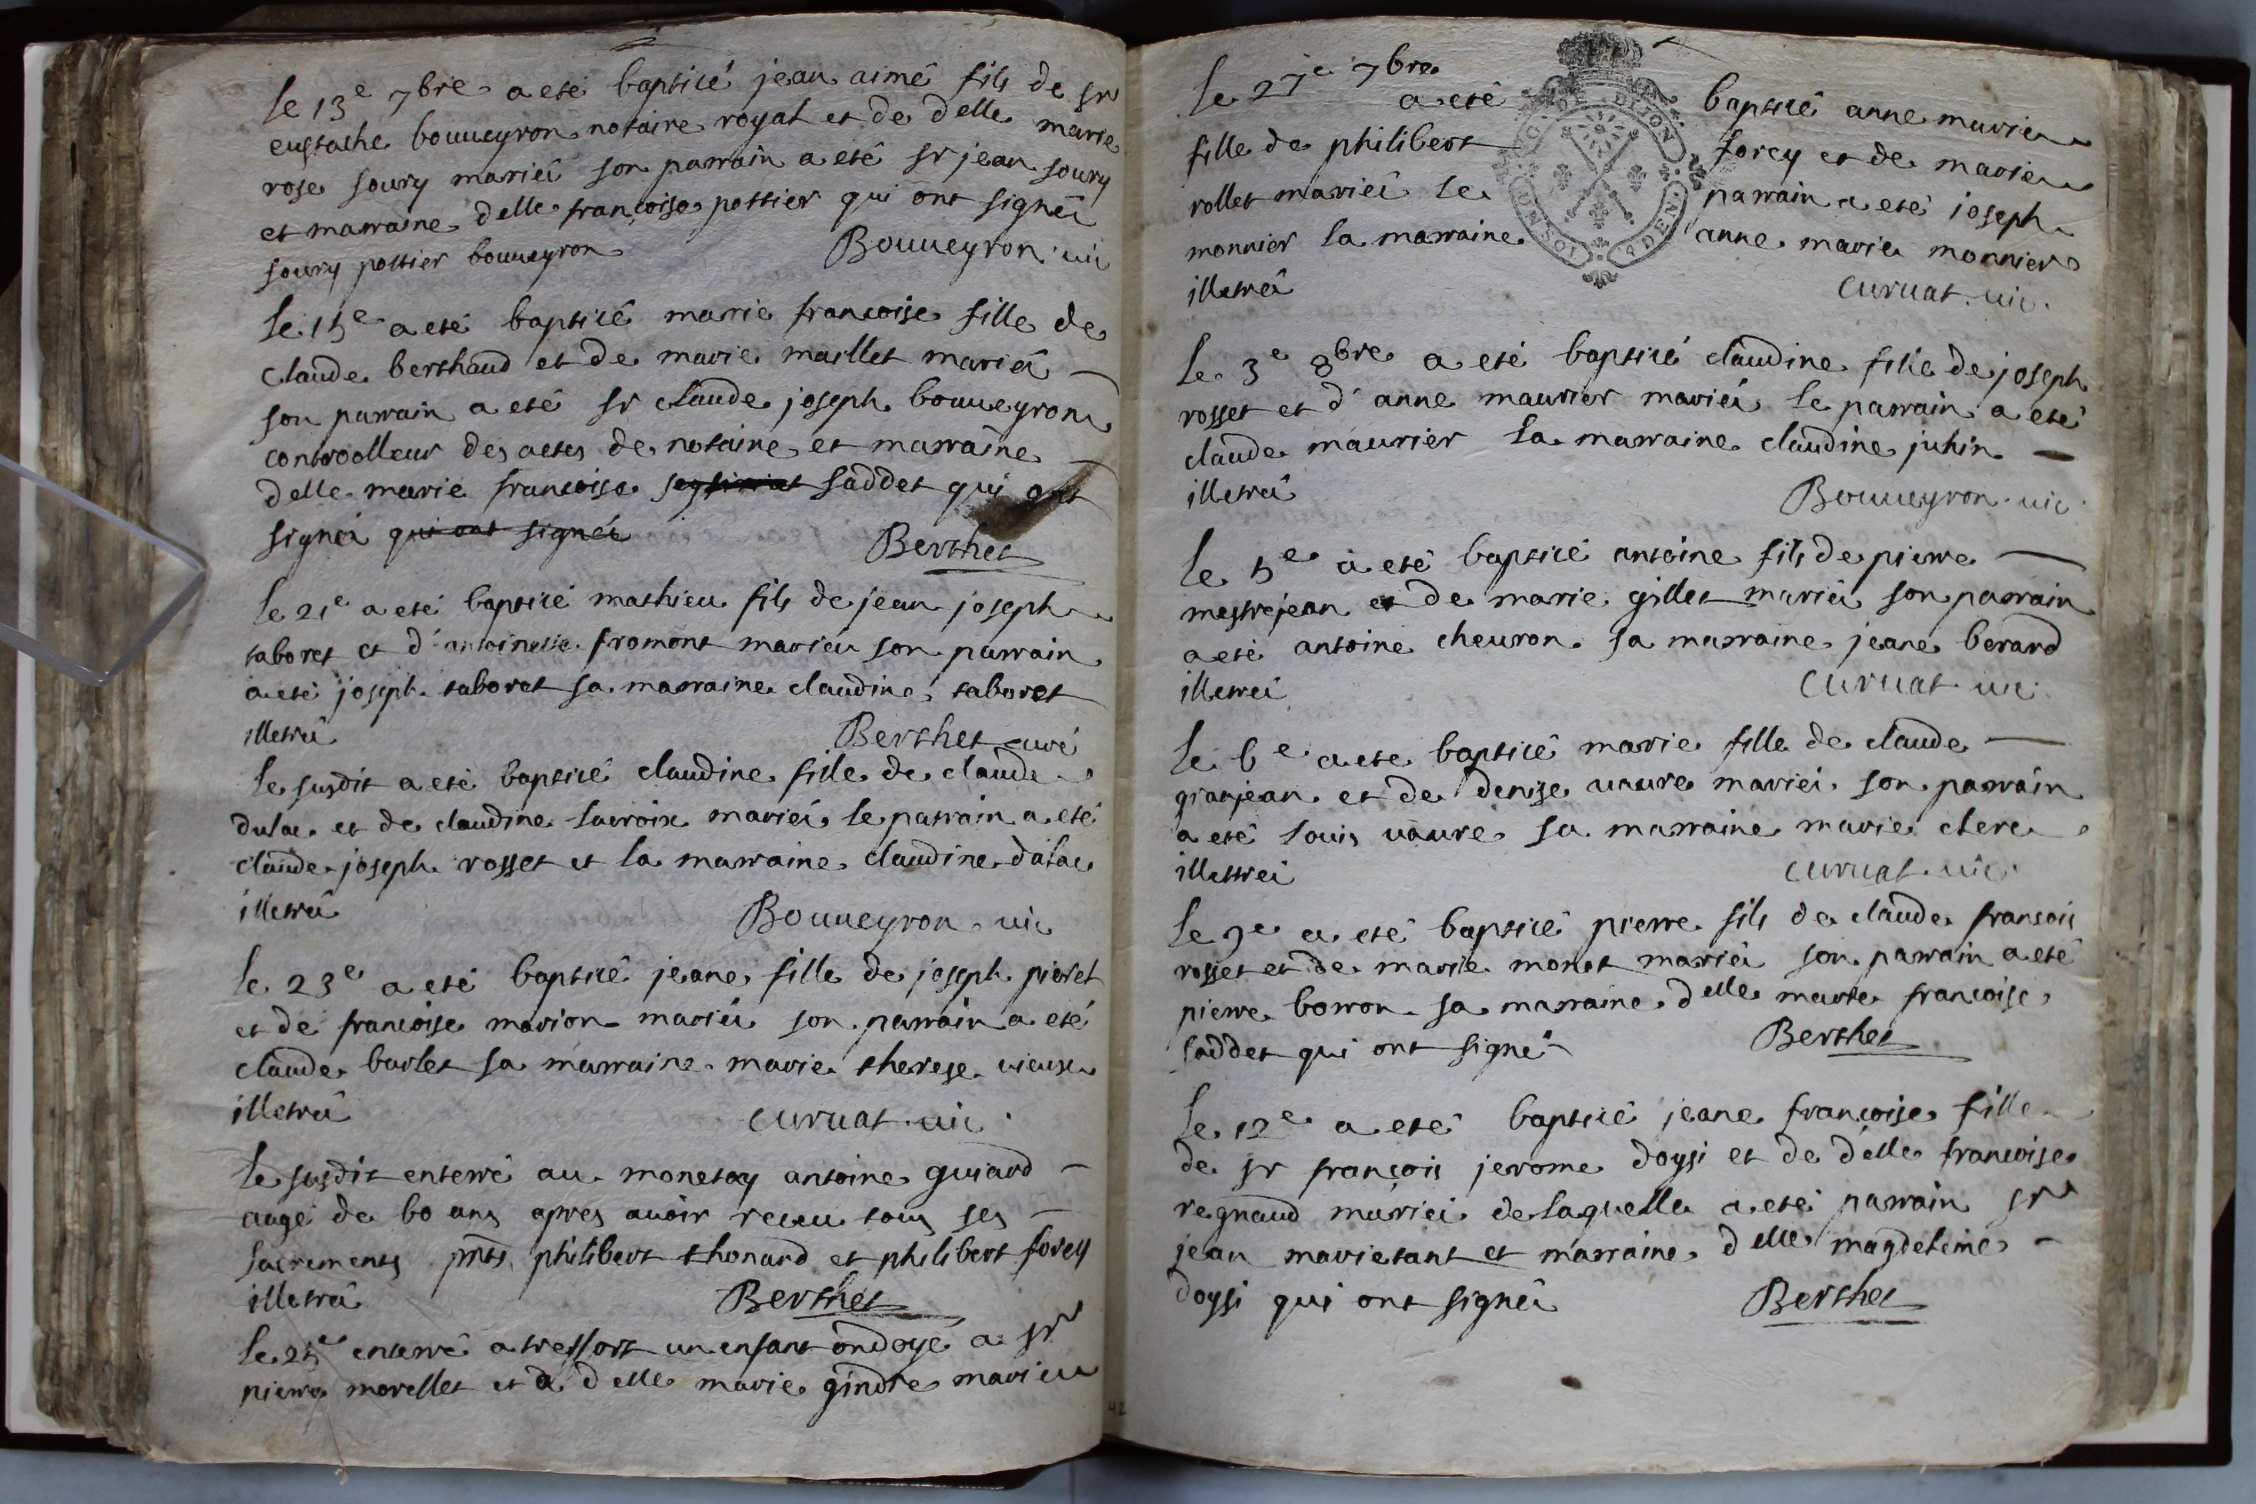 le 13e 7bre a eté baptisé jean aimé fils de sr
eustache bouueyron notaire royal et de delle marie
rose soury mariéś son parrain a eté sr jean soury
et marraine delle françoise pottier qui ont signéś
soury pottier bouueyron Bouueyron uic
le 15e a eté baptisé marie francoise fille de
claude berthaud et de marie maillet mariéś
son parrain a eté sr claude joseph bouueyron
controolleur des actes de notaire et marraine
delle marie francoise saddet qui ont
signéś qui ont signéś Berthet
le 21e a eté baptisé mathieu fils de jean joseph
taboret et d'antoinette fromont mariéś son parrain
a eté joseph taboret sa marraine claudine taboret
illetréś Berthet curé
le susdit a eté baptisé claudine fille de claude
dulac et de claudine lacroix mariéś le parrain a eté
claude joseph rosset et la marraine claudine dulac
illetréś Bouueyron uic
le 23e a eté baptisé jeane fille de joseph pieret
et de françoise marion mariéś son parrain a eté
claude barlet sa marraine marie therese uieux
illetréś curuat uic
le susdit enterré au monetay antoine guiard
aagé de 60 ans apres auoir receu tous ses
sacrements pnts philibert thonard et philibert forey
illetréś Berthet
le 25e enterré a tressort un enfant ondoyé a sr
pierre morellet et a delle marie gindre mariéś
42
le 27e 7bre
a eté baptisé anne marie
fille de philibert forey et de marie
rollet mariéś le parrain a eté joseph
monnier la marraine anne marie monnier
illetréś curuat uic
le 3e 8bre a eté baptisé claudine fille de joseph
rosset et d'anne maurier mariéś le parrain a eté
claude maurier la marraine claudine juhin
illetréś Bouueyron uic
le 5e a eté baptisé antoine fils de pierre
mestrejean et de marie gillet mariéś son parrain
a eté antoine cheuron sa marraine jeane berard
illetréś curuat uic
le 6e a eté baptisé marie fille de claude
granjean et de denise uaure mariéś son parrain
a eté louis uaure sa marraine marie clere
illettréś curuat uic
le 9e a eté baptisé pierre fils de claude francois
rosset et de marie monet mariéś son parrain a eté
pierre borron sa marraine delle marie francoise
saddet qui ont signé Berthet
le 12e a eté baptisé jeane françoise fille
de sr françois jerome doysi et de delle francoise
regnaud mariéś de laquelle a eté parrain sr
jean marietant et marraine delle magdeleine
doysi qui ont signéś Berthet